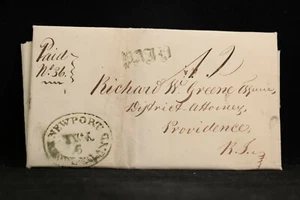 Paid
No. 36.
FREE
Richard W. Greene Esquire
District Attorney,
Providence,
R.I.
NEWPORT